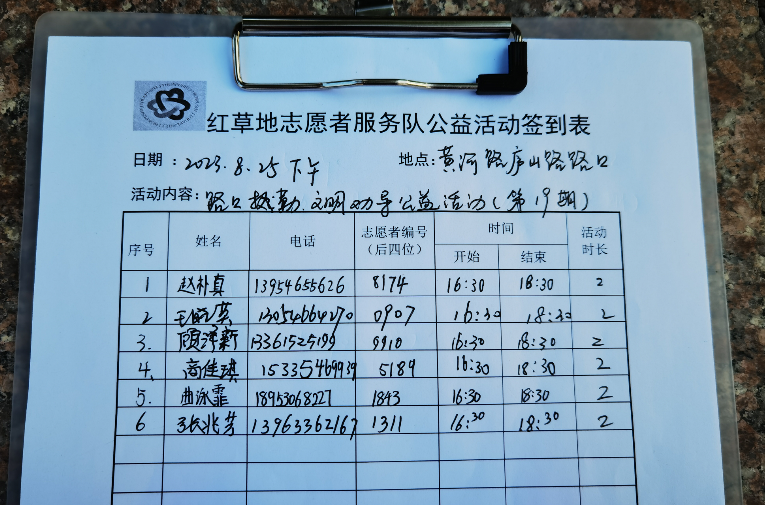 红草地志愿者服务队公益活动签到表
日期：2023.8.25下午 地点：黄河路庐山路路口
活动内容：路口执勤、文明劝导公益活动(第19期)
序号 姓名 电话 志愿者编号(后四位) 时间 开始 结束 活动时长
1 赵朴真 13954655626 8174 16:30 18:30 2
2 13054664270 0907 16:30 18:30 2
3. 顾泽新 13361525199 9910 16:30 18:30 2
4、 高佳琪 15335469939 5189 16:30 18:30 2
5. 曲泳霏 18953068227 1843 16:30 18:30 2
6 张兆芳 13963362167 1311 16:30 18:30 2